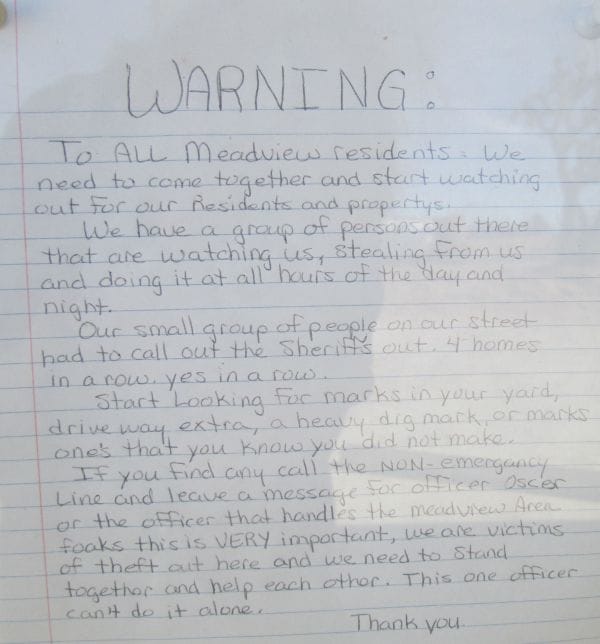 WARNING:
To ALL Meadview residents. We
need to come together and start watching
out for our Residents and propertys.
We have a group of persons out there
that are watching us, stealing from us
and doing it at all hours of the day and
night.
Our small group of people on our street
had to call out the Sheriff's out. 4 homes
in a row. yes in a row.
Start Looking for marks in your yard,
drive way extra, a heavy dig mark, or marks
one's that you know you did not make.
If you find any call the NON-emergancy
Line and leave a message for officer Oscer
or the officer that handles the meadview Area
foaks this is VERY important, we are victims
of theft out here and we need to stand
togethor and help each othor. This one officer
can't do it alone.
Thank you.